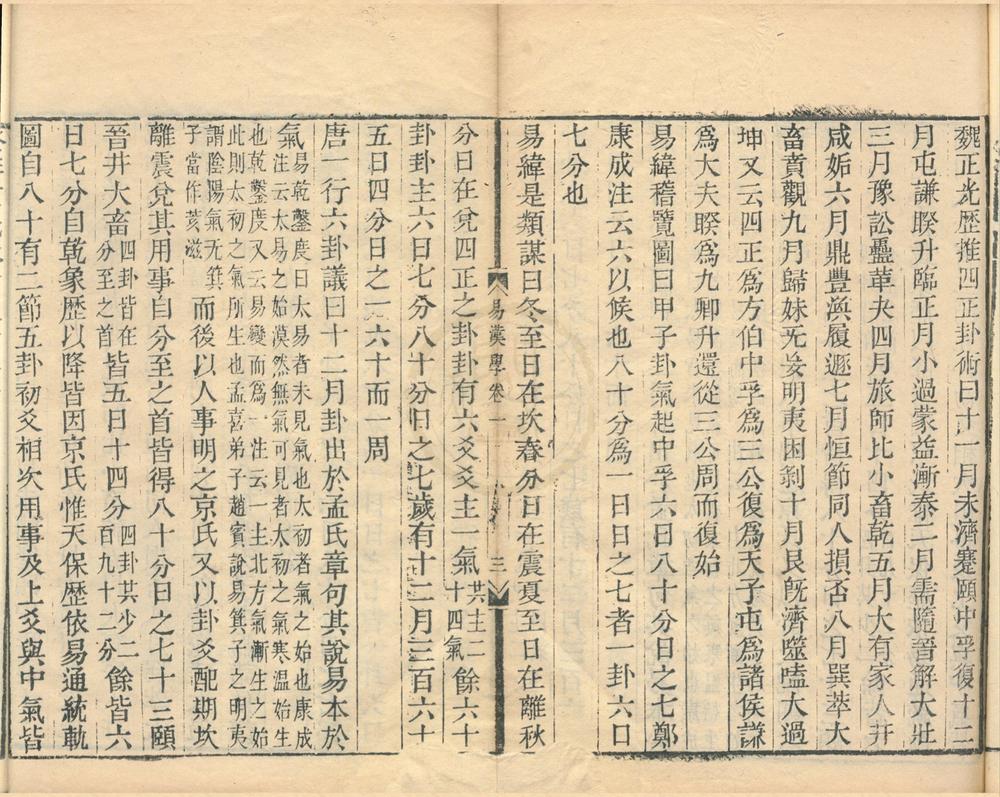 魏正光歷推四正卦術曰十一月未濟蹇頤中孚復十二
月屯謙睽升臨正月小過蒙益漸泰二月需隨晉解大壯
三月豫訟蠱革夬四月旅師比小畜乾五月大有家人井
咸姤六月鼎豐渙履遯七月恒節同人損否八月巽萃大
畜賁觀九月歸妹无妄明夷困剝十月艮既濟噬嗑大過
坤又云四正爲方伯中孚爲三公復爲天子屯爲諸侯謙
爲大夫睽爲九卿升還從三公周而復始
易緯稽覽圖曰甲子卦氣起中孚六日八十分日之七鄭
康成注云六以候也八十分爲一日日之七者一卦六日
七分也
易緯是類謀曰冬至日在坎春分日在震夏至日在離秋
易漢學卷一 三
分日在兌四正之卦卦有六爻爻主一氣共主二十四氣餘六十
卦卦主六日七分八十分日之七歲有十二月三百六十
五日四分日之一六十而一周
唐一行六卦議曰十二月卦出於孟氏章句其說易本於
氣易乾鑿度曰太易者未見氣也太初者氣之始也康成
注云太易之始漠然無氣可見者太初之氣寒温始生
也乾鑿度又云易變而爲一注云一主北方氣漸生之始
此則太初之氣所生也孟喜弟子趙賓說易箕子之明夷
謂陰陽氣无箕
子當作荄滋而後以人事明之京氏又以卦爻配期坎
離震兌其用事自分至之首皆得八十分日之七十三頤
晉井大畜四卦皆在分至之首皆五日十四分四卦其少二百九十二分餘皆六
日七分自乾象歷以降皆因京氏惟天保歷依易通統軌
圖自八十有二節五卦初爻相次用事及上爻與中氣皆